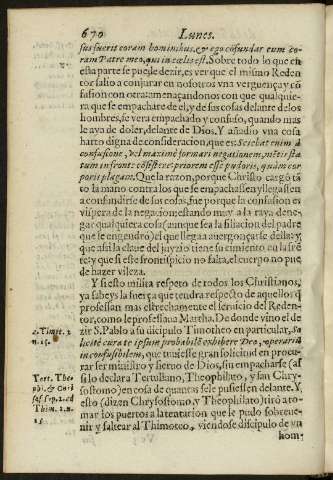 670 Lunes.
sus fuerit coram hominibus, & ego cõfundar eum co-
ram Patre meo, qui in cælis est. Sobre todo lo que en
esta parte se puede dezir, es ver que el mismo Reden
tor salio a conjurar en nosotros vna verguença, y cõ
fusion con otra: amenaçandonos con que qualquie-
ra que se empachare de el, y de sus cosas delante de los
hombres, se vera empachado y confuso, quando mas
le aya de doler, delante de Dios. Y añadio vna cosa
harto digna de consideracion, que es:
confusione,
in fronte
poris plagam. Que la razon, porque Christo cargò tã
to la mano contra los que se empachassen y llegassen
a confundirse de sus cosas, fue porque la confusion es
vispera de la negacion: estando muy a la raya de ne-
gar qualquiera cosa (aunque sea la filiacion del padre
que se engendro) el que llega a auergonçarse della: y
que assi la claue del juyzio tiene su cimiento en la frẽ
te; y que si este frontispicio no salta, el cuerpo no pue
de hazer vileza.
Y si esto milita respeto de todos los Christianos,
ya sabeys la fuerça que tendra respecto de aquellos q̃
professan mas estrechamente el seruicio del Reden-
tor, como le professaua Martha. De donde vino el de
zir S. Pablo a su dicipulo Timotheo en particular, So
2. Timot. 2
n. 15.
licitè cura te ipsum probabilẽ exhibere Deo, operariũ
inconfusibilem, que tuuiesse gran solicitud en procu-
rar ser ministro y sieruo de Dios, sin empacharse (as
Tert. Theo
phi. & Chri
si lo declara Tertuliano, Theophilato, y san Chry-
sostomo) en cosa de quantas se le pusiessen delante. Y
Thim. 2. n.
15.
esto (dizen Chrysostomo, y Theophilato) tirò a to-
mar los puertos a la tentacion que le pudo sobreue-
nir y saltear al Thimoteo, viendose dicipulo de vn
hom-